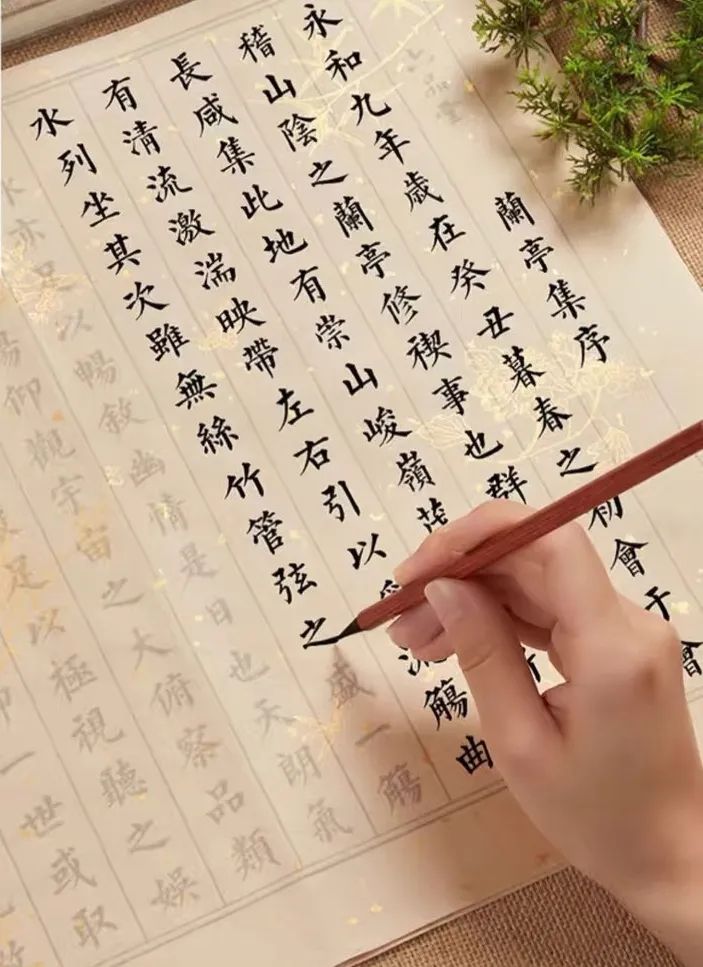 六品堂
蘭亭集序
永和九年歲在癸丑暮春之初會于會
稽山陰之蘭亭修禊事也群
長咸集此地有崇山峻嶺茂
有清流激湍映帶左右引以流觴曲
水列坐其次雖無絲竹管弦之盛一觴
亦足以暢敘幽情是日也天朗氣
暢仰觀宇宙之大俯察品類
足以極視聽之娛
仰一世或取